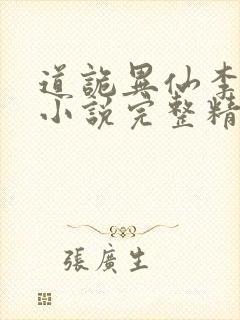 道詭異仙李
小說完整精
張廣生